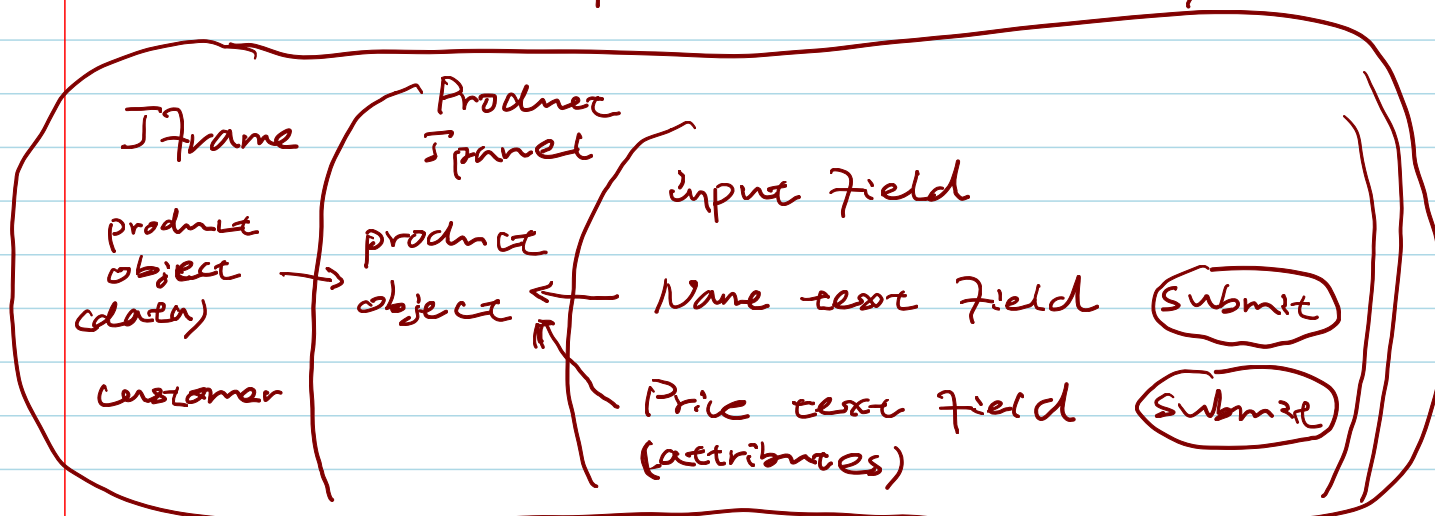 Jframe
product
object
(data)
customer
Product
Jpanel
product
object
input field
Name text field submit
Price text field submit
(attributes)